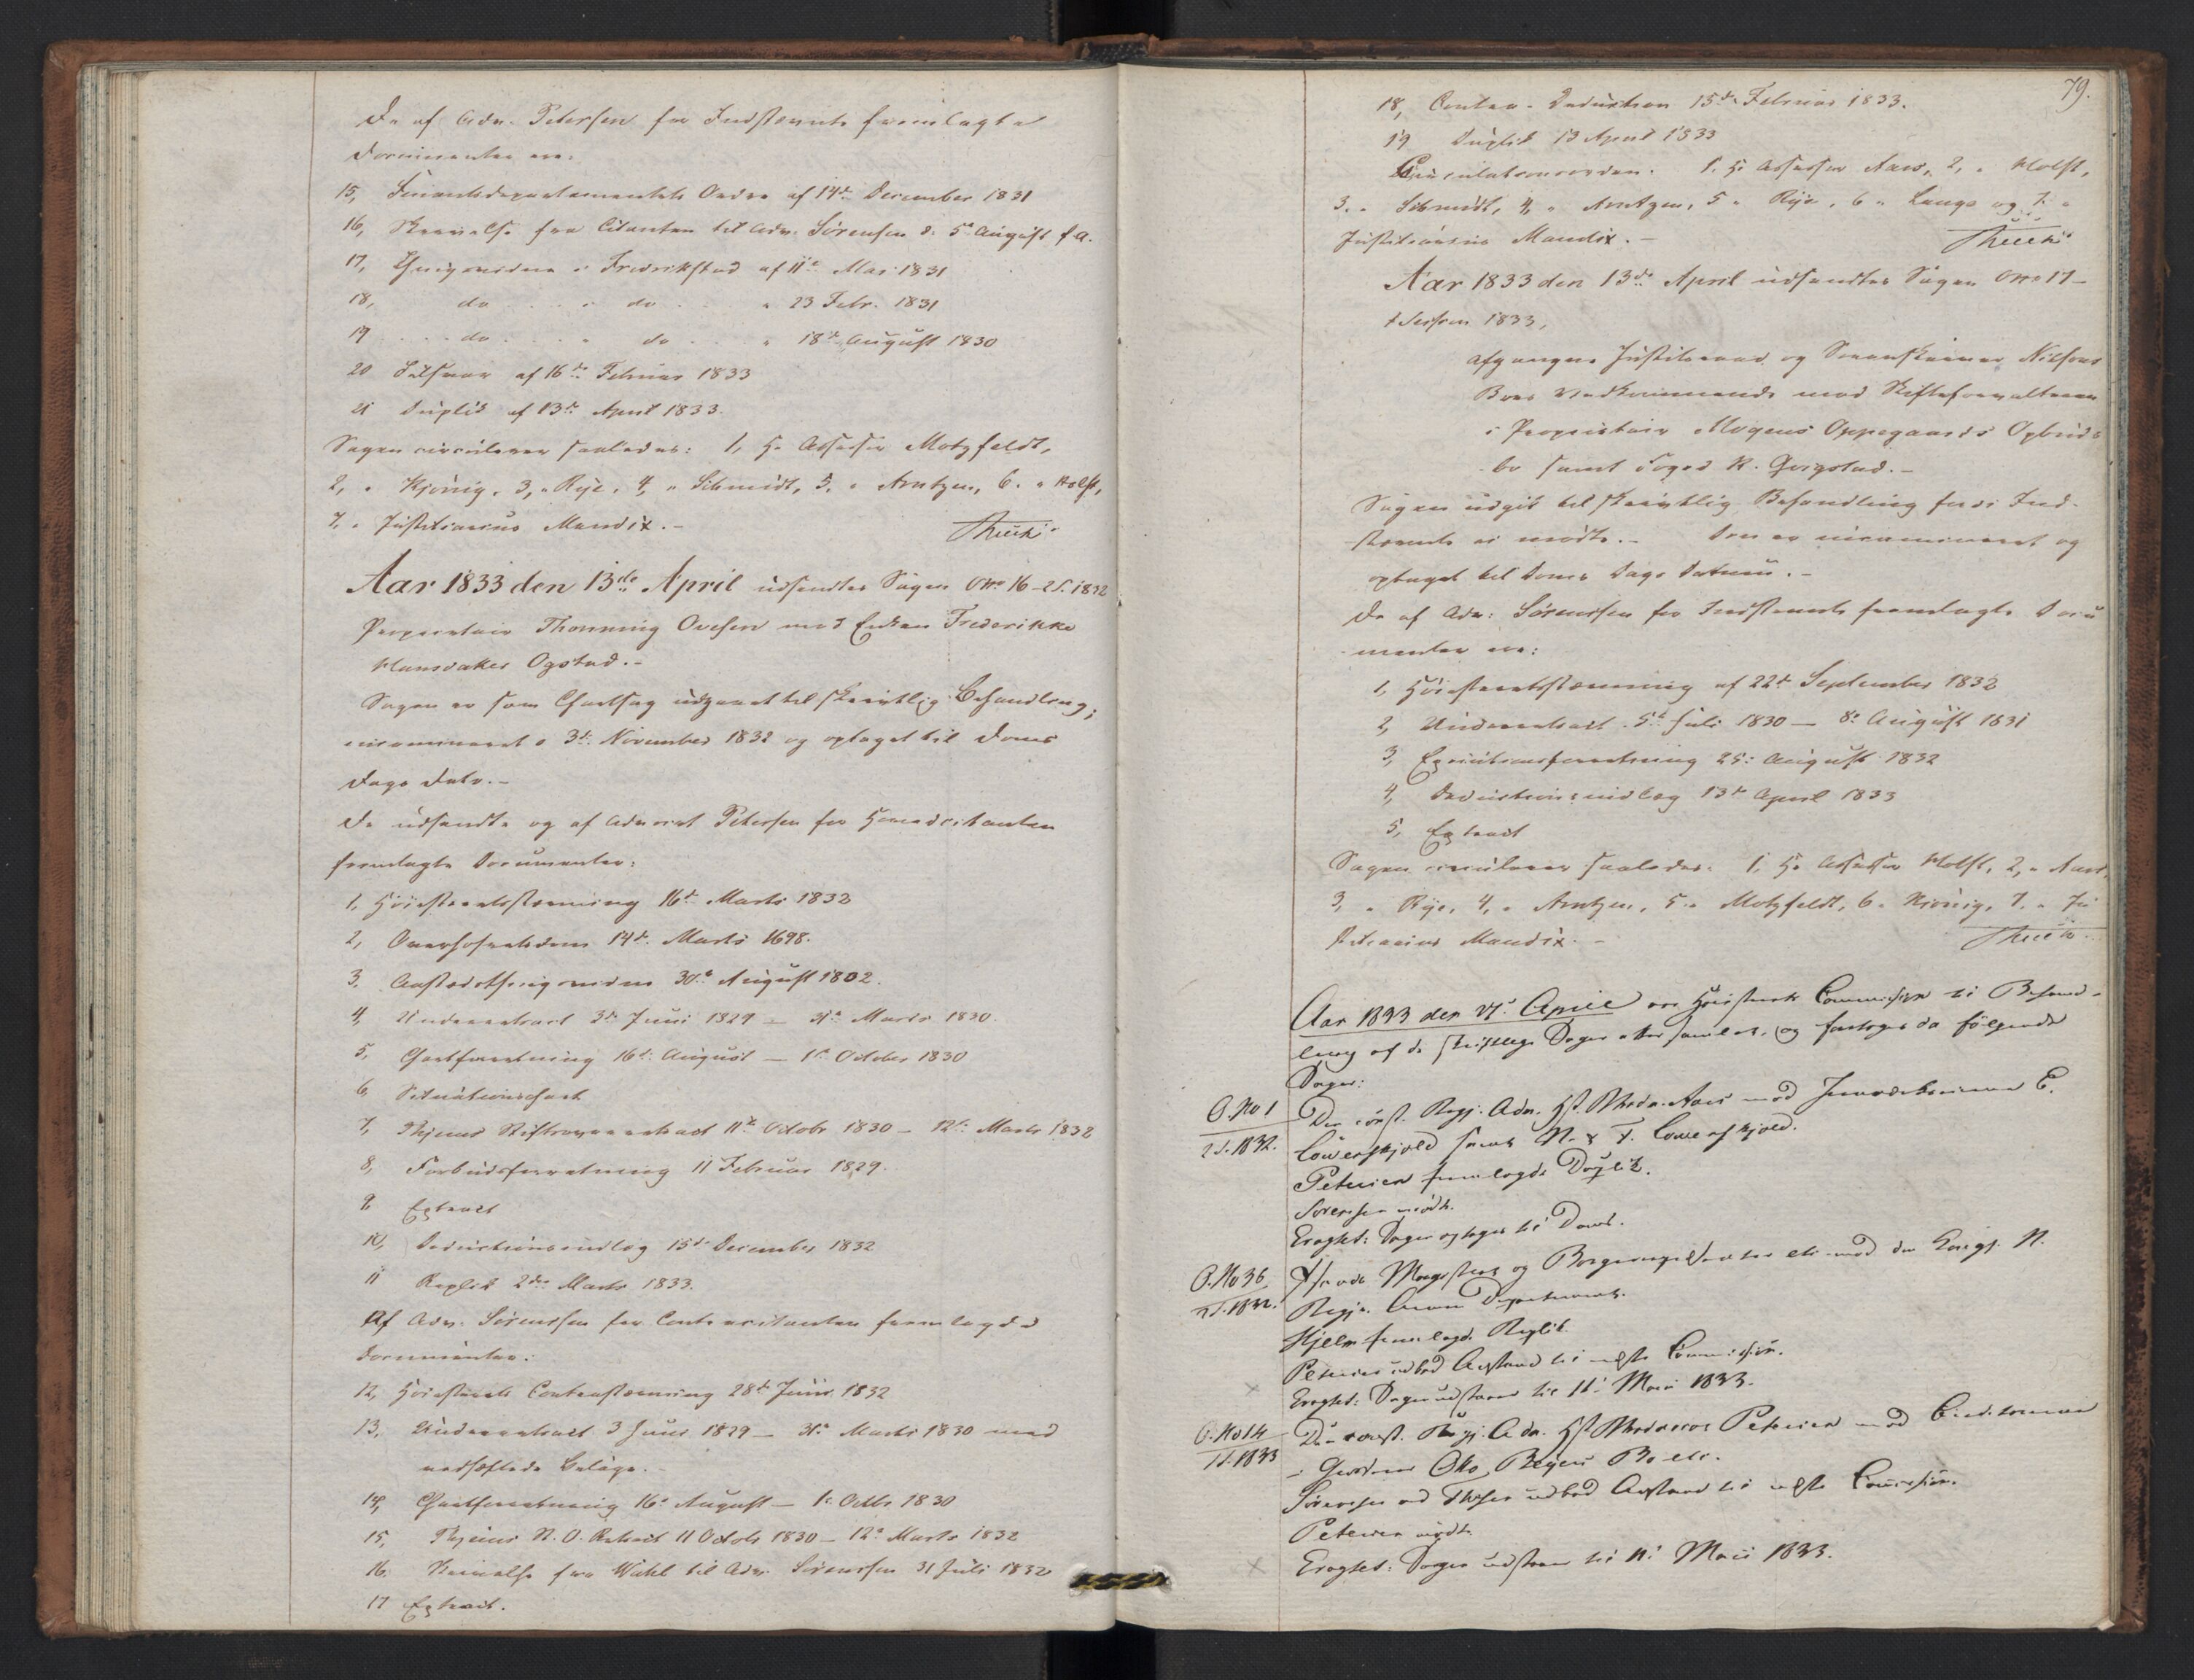 De af Adv. Petersen for Indstevnte fremlagte
Documenter ere:
15, Finantsdepartementets Ordre af 14de December 1831
16, Skrivelse fra Citanten til Adv. Sørensen d. 5te August f. A.
17, Thingsvidne i Fredrikstad af 11te Mai 1831
18, do i do " 23 Febr. 1831
19 do " do " 18de August 1830
20 Tilsvar af 16de Februar 1833
21 Duplik af 13de April 1833.
Sagen circulerer saaledes: 1, Hr Assessor Motzfeldt,
2, " Kjønig, 3, " Rye, 4, " Schmidt, 5, " Arntzen, 6. " Holst,
7, " Justitiarius Mandix.-
Aar 1833 den 13de April udsendtes Sagen No 16 - 2 S. 1832
Proprietair Thomming Ovesen mod Enken Frederikke
Hansdatter Ogstad.-
Sagen er som Chartsag udgaaet til skriftlig Behandling;
incamineret d 3de November 1832 og optaget til Doms
Dags Dato.-
De udsendte og af Advocat Petersen for Hovedcitanten
fremlagte Documenter:
1, Høiesteretsstævning 16de Marts 1832
2, Overhofretsdom 14de Marts 1698.
3, Aastedsthingsvidne 30te August 1802.
4, Underretsact 3de Juni 1829 - 31te Marts 1830.
5, Chartforretning 16de August - 1ste October 1830
6, Situationschart
7, Thjems Stiftsoverretsact 11te Octobr 1830 - 12te Marts 1832
8, Forbudsforretning 11 Februar 1829.
9, Extract
10, Deductionsindlæg 15de December 1832
11 Replik 2den Marts 1833.
Af Adv. Sørenssen for Contracitanten fremlagde
Documenter:
12, Høiesterets Contrastævning 28de Juni 1832
13, Underretsact 3 Juni 1829 - 31te Marts 1830 med
vedhæftede Bilage.
14, Chartforretning 16de August - 1ste Octbr 1830
15, Thjems S. O. Retsact 11 Octobr 1830 - 12te Marts 1832
16. Skrivelse fra Wahl til Adv. Sørenssen 31 Juli 1832
17 Extract.
79.
18, Contra-Deduction 15de Februar 1833.
19 Duplik 13 April 1833
Circulationsorden: 1, Hr Assessor Aars, 2, " Holst,
3. " Schmidt, 4, " Arntzen, 5 " Rye, 6 " Lange og 7. "
Justitiarius Mandix.-
Aar 1833 den 13de April udsendtes Sagen No 17-
1 Session 1833,
afgangne Justitsraad og Sorenskriver Nilsons
Boes Vedkommende mod Skifteforvalteren
i Proprietair Mogens Oppegaards Opbuds
bo samt Foged K. Qvigstad.-
Sagen udgik til skriftlig Behandling fordi Ind-
stevnte ei mødte.- Den er incamineret og
optaget til Doms Dags Datum.-
De af Adv: Sørenssen for Indstevnte fremlagte Docu
menter ere:
1, Høiesteretsstævning af 22de September 1832
2, Underretsact 5te Juli 1830 - 8de August 1831
3, Executionsforretning 25: August 1832
4, Deductionsindlæg 13de April 1833
5, Extract
Sagen circulerer saaledes: 1, Hr Assessor Holst, 2, " Aars,
3, " Rye, 4, " Arntzen, 5. " Motzfeldt, 6 " Kjønig, 7. " Ju
stitiarius Mandix.-
Aar 1833 den 27de April var Høiesterets Commission til Behand-
ling af de skriftlige Sager atter samlet, og foretoges da følgende
Sager:
O. No 1
2 S. 1832.
Den const. Regj. Adv. Hst. Prokr. Aars mod E.
Løwenskjold samt N. & F. Løwenskjold.
Petersen fremlagde Duplik.
Sørensen mødte.
Eragtet: Sagen optages til Doms.
O. No 36
2 S. 1832.
Magistrat og Borgerrepræsentanter etc. mod den Kongl. N.
Regjs. Departement.
Hjelm fremlagde Replik.
Petersen udbad Anstand til næste Commission.
Eragtet: Sagen udstaaer til 11te Mai 1833.
O. No 14
1 S. 1833
Den const. Regj. Adv. Hst. Procurator Petersen mod Creditorerne
i Otto Beyers Bo etc.
Sørensen udbad Anstand til næste Commission.
Petersen mødte
Eragtet: Sagen udstaaer til 11te Mai 1833.